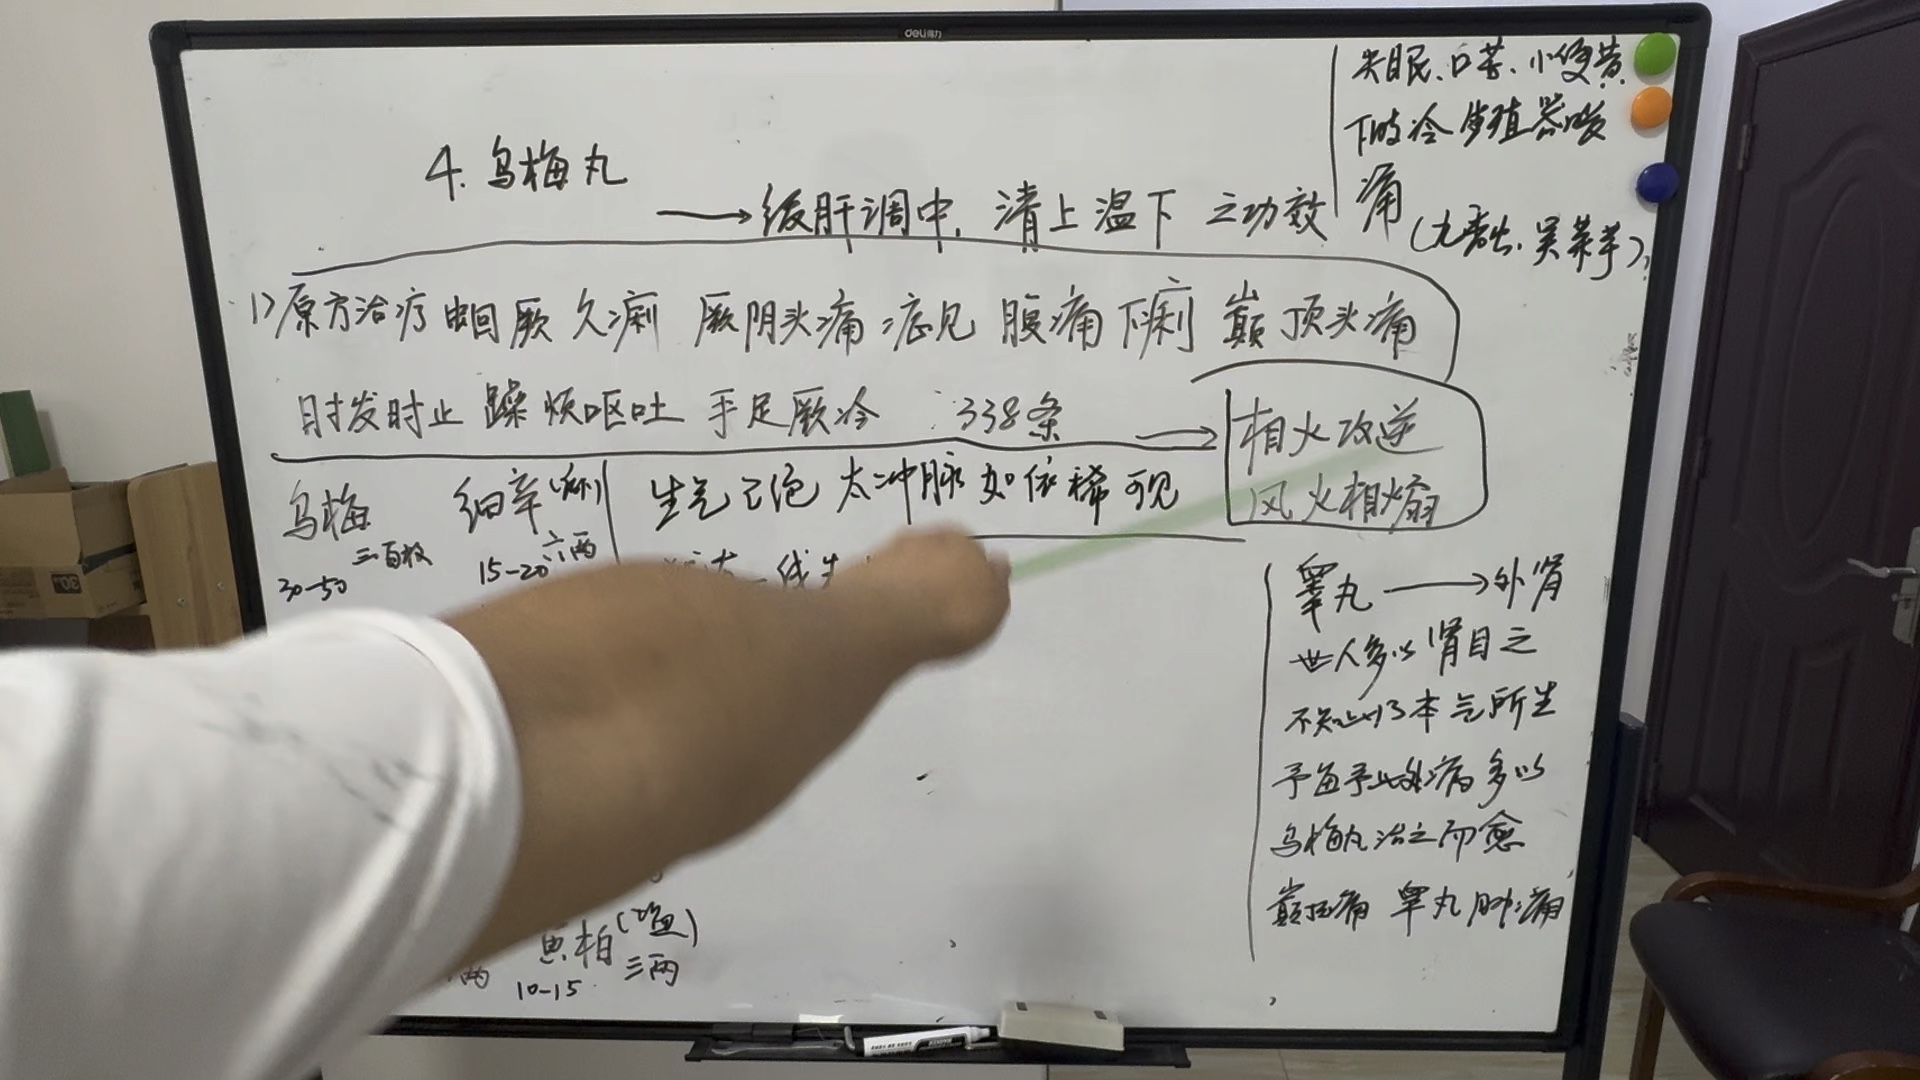 deli得力
失眠、口苦、小便黄
下肢冷 生殖器
痛
4. 乌梅丸
→缓肝调中，清上温下 之功效
1>原方治疗 蛔厥 久痢 厥阴头痛 症见 腹痛 下痢 巅顶头痛
时发时止 躁烦呕吐 手足厥冷 338条
→相火攻逆
风火相煽
乌梅 三百枚
30-50
细辛 六两
15-20
生气已绝 太冲脉如依稀可见
一线生
睾丸→外肾
世人多以肾目之
不知此乃本气所生
予
乌梅丸治之而愈
巅顶痛 睾丸肿痛
两
黄柏(盐)
三两
10-15